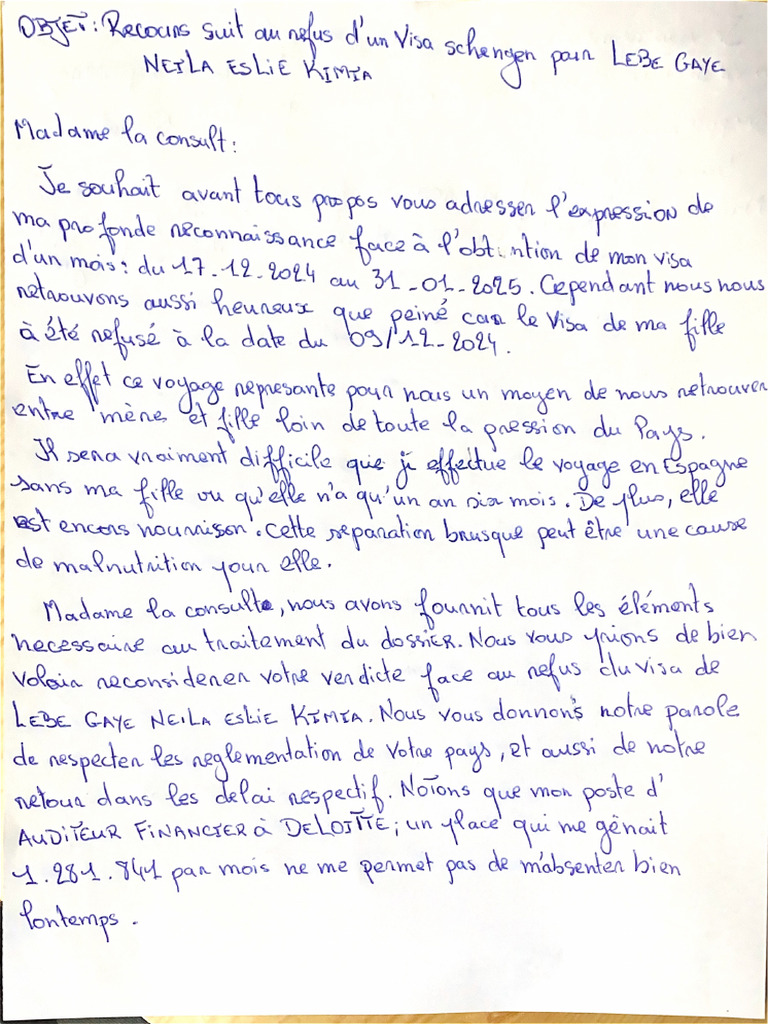 OBJET: Recours suit au refus d'un Visa schengen pour LEBE GAYE
NEILA ESLIE KIMIA
Madame la consult:
Je souhait avant tous propos vous adresser l'expression de
ma profonde reconnaissance face à l'obtention de mon visa
d'un mois: du 17-12-2024 au 31-01-2025. Cependant nous nous
retrouvons aussi heureux que peiné car le Visa de ma fille
à été refusé à la date du 09/12-2024.
En effet ce voyage represante pour nous un moyen de nous retrouver
entre mère et fille loin de toute la pression du Pays.
Il sera vraiment difficile que je effectue le voyage en Espagne
sans ma fille vu qu'elle n'a qu'un an six mois. De plus, elle
est encors nourrisson. Cette separation brusque peut être une cause
de malnutrition pour elle.
Madame la consulte, nous avons fournit tous les éléments
necessaire au traitement du dossier. Nous vous prions de bien
voloir reconsiderer votre verdicte face au refus du visa de
LEBE GAYE NEILA ESLIE KIMIA. Nous vous donnons notre parole
de respecter les reglementation de votre pays, et aussi de notre
retour dans les delai respectif. Notons que mon poste d'
AUDITEUR FINANCIER à DELOITTE; un place qui me gênait
1.281.841 par mois ne me permet pas de m'absenter bien
lontemps.